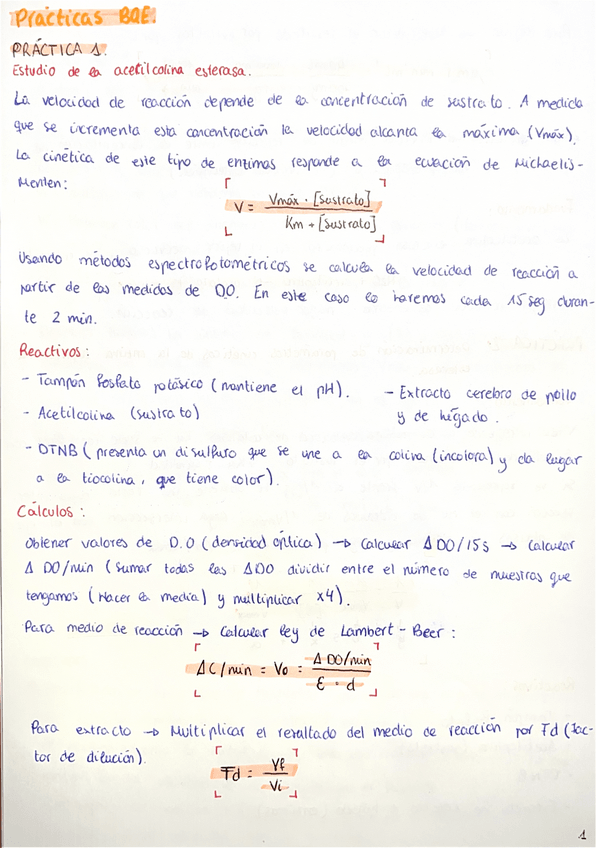 Prácticas BQE.
PRÁCTICA 1.
Estudio de la acetilcolina esterasa.
La velocidad de reacción depende de la concentración de sustrato. A medida
que se incrementa esta concentración la velocidad alcanza la máxima (Vmáx).
La cinética de este tipo de enzimas responde a la ecuación de Michaelis-
Menten:
V = Vmáx · [Sustrato] / Km + [Sustrato]
Usando métodos espectrofotométricos se calcula la velocidad de reacción a
partir de las medidas de DO. En este caso lo haremos cada 15 seg duran-
te 2 min.
Reactivos:
- Tampón fosfato potásico (mantiene el pH).
- Extracto cerebro de pollo
y de hígado.
- Acetilcolina (sustrato)
- DTNB (presenta un disulfuro que se une a la colina (incolora) y da lugar
a la tiocolina, que tiene color).
Cálculos:
Obtener valores de D.O (densidad óptica) → Calcular ΔDO/15s → Calcular
Δ DO/min (sumar todas las ΔDO dividir entre el número de muestras que
tengamos (Hacer la media) y multiplicar x4).
Para medio de reacción → Calcular ley de Lambert-Beer:
ΔC/min = Vo = ΔDO/min / ε · d
Para extracto → Multiplicar el resultado del medio de reacción por Fd (fac-
tor de dilución).
Fd = Vf / Vi
1